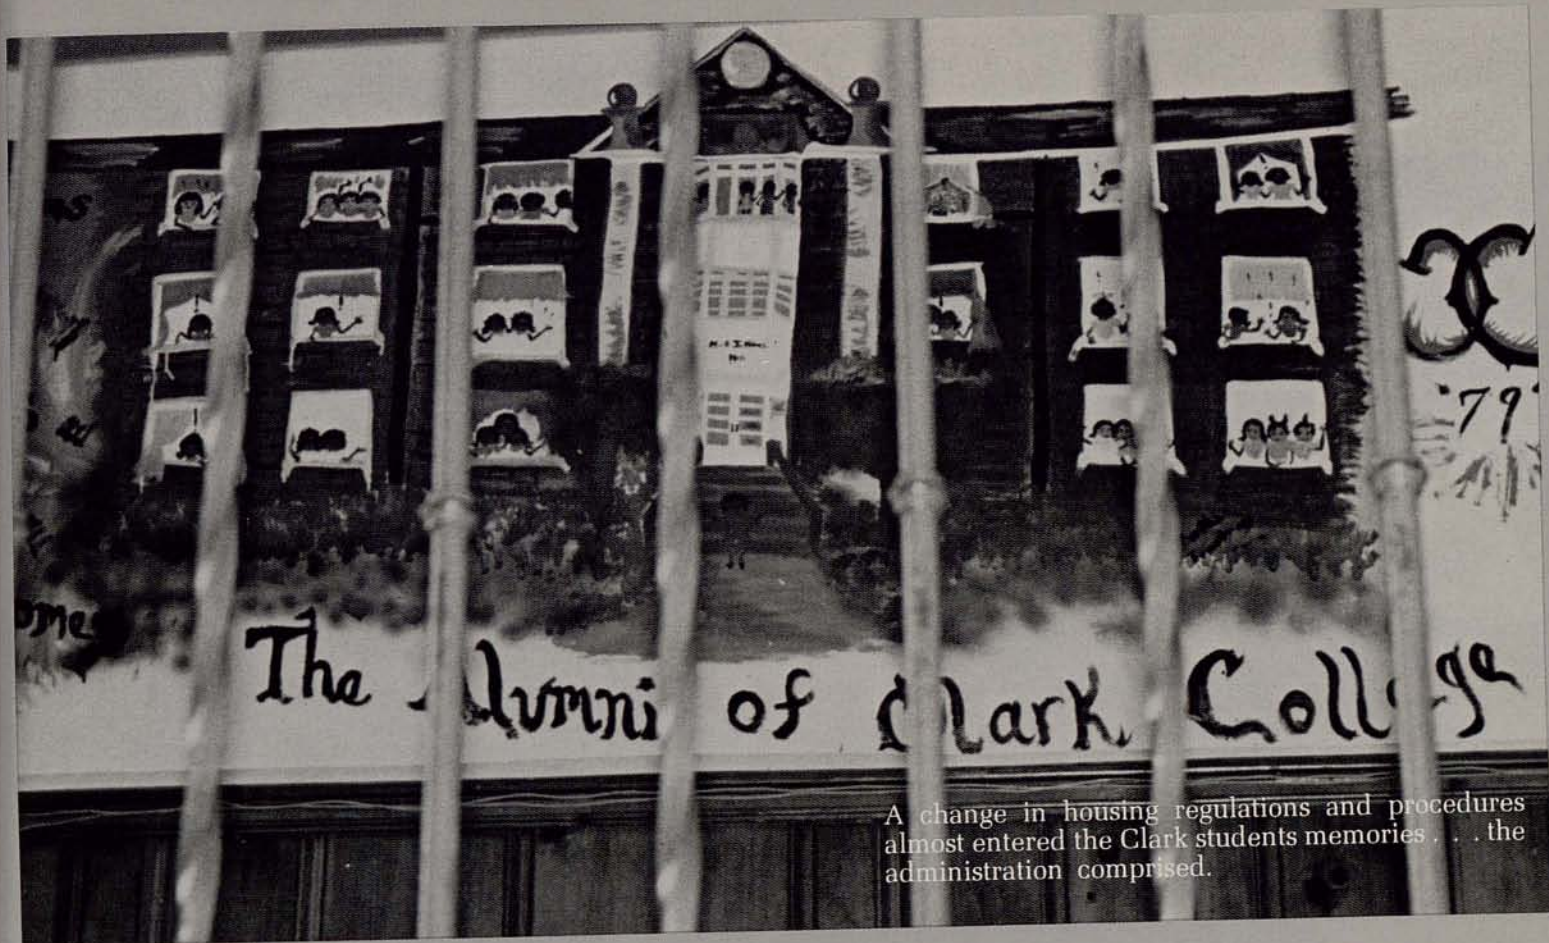 '79
The Alumni of Clark College
A change in housing regulations and procedures
almost entered the Clark students memories . . . the
administration comprised.